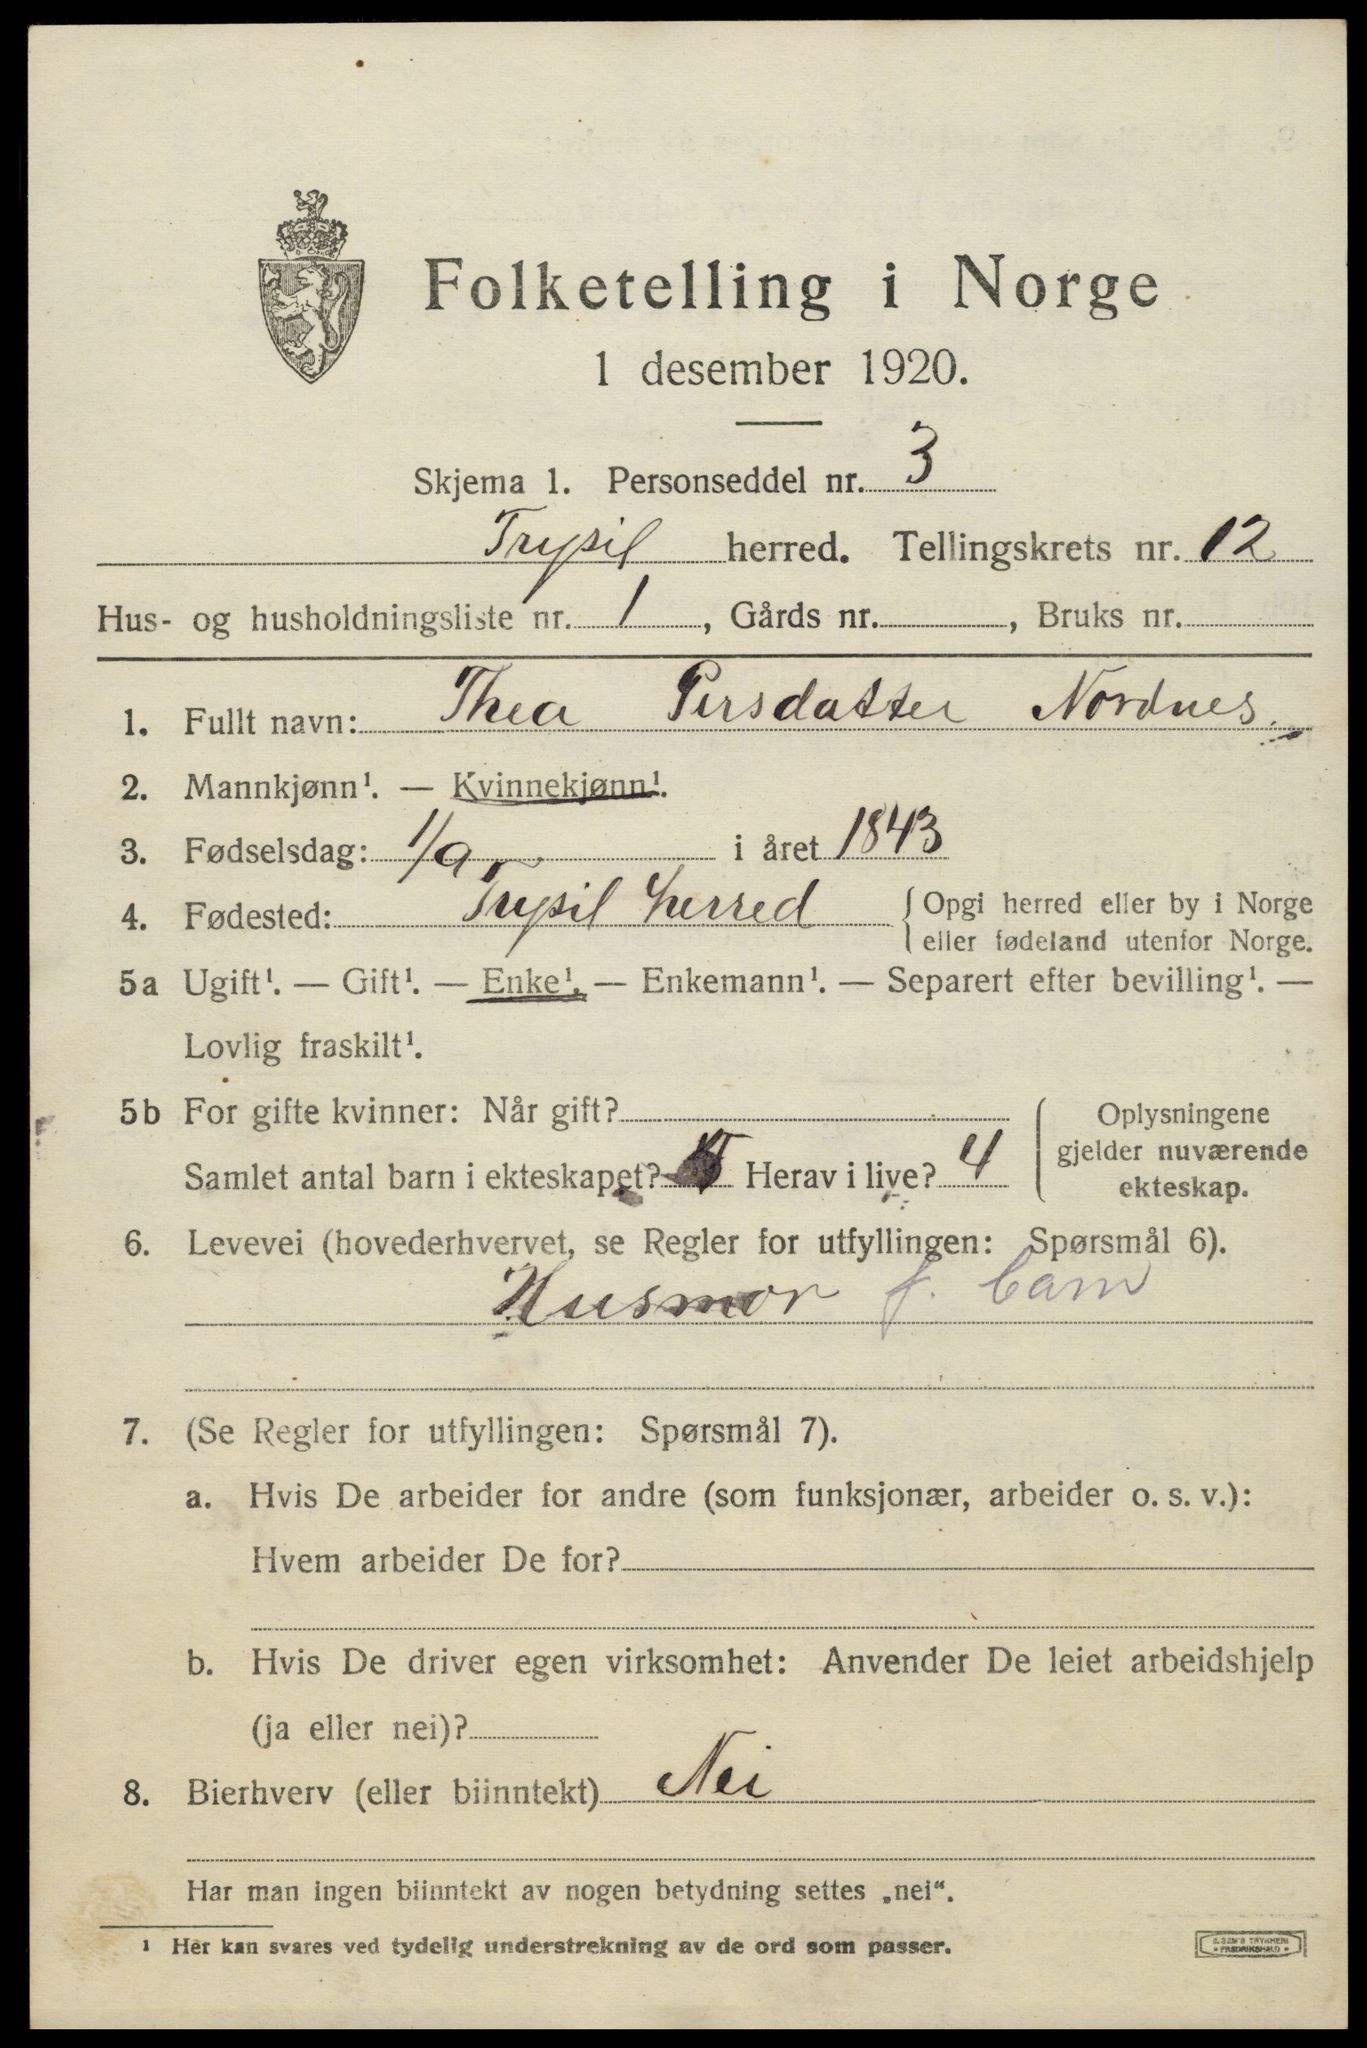 Folketelling i Norge
1 desember 1920.
Skjema 1. Personseddel nr. 3
Trysil herred. Tellingskrets nr. 12
Hus- og husholdningsliste nr. 1, Gårds nr. , Bruks nr.
1. Fullt navn: Thea Persdatter Nordnes.
2. Mannkjønn¹. — Kvinnekjønn¹.
3. Fødselsdag: 1/9 i året 1843
4. Fødested: Trysil herred { Opgi herred eller by i Norge
eller fødeland utenfor Norge.
5a Ugift¹. — Gift¹. — Enke¹. — Enkemann¹. — Separert efter bevilling¹. —
Lovlig fraskilt¹.
5b For gifte kvinner: Når gift?
Samlet antal barn i ekteskapet? Herav i live? 4
Oplysningene
gjelder nuværende
ekteskap.
6. Levevei (hovederhvervet, se Regler for utfyllingen: Spørsmål 6).
Husmor f.
7. (Se Regler for utfyllingen: Spørsmål 7).
a. Hvis De arbeider for andre (som funksjonær, arbeider o. s. v.):
Hvem arbeider De for?
b. Hvis De driver egen virksomhet: Anvender De leiet arbeidshjelp
(ja eller nei)?
8. Bierhverv (eller biinntekt) Nei
Har man ingen biinntekt av nogen betydning settes „nei“.
¹ Her kan svares ved tydelig understrekning av de ord som passer.
TRYKKERI
FREDRIKSHALD